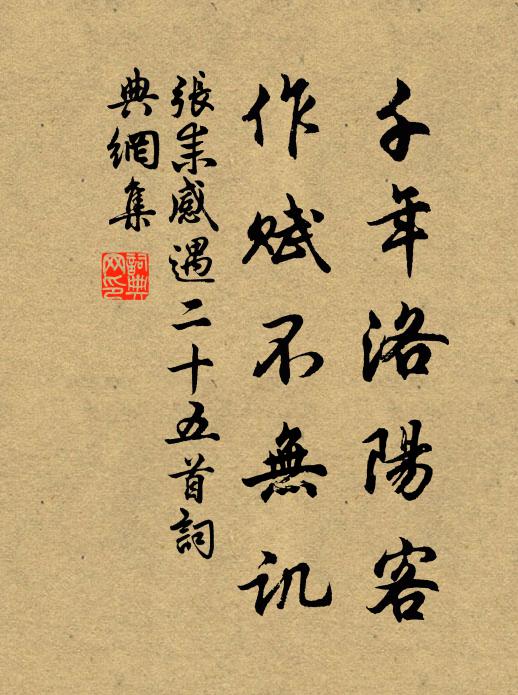 千年洛陽客
作賦不無訊
張耒感遇二十五首詞
典網集
詞典網印